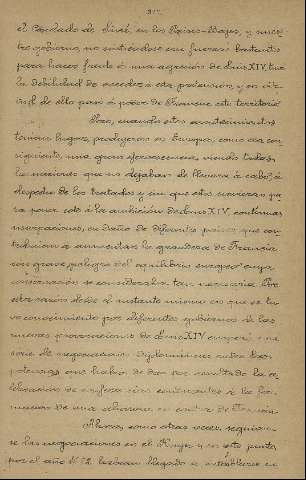 el Condado de Niné, en los Paises-Bajos, y nues-
tro gobierno, no sintiendose con fuerzas bastantes
para hacer frente á una agresion de Luis XIV, tuvo
la debilidad de acceder á esta pretension, y en vir-
tud de ello paso á poder de Francia este territorio
Pero, cuando estos acontecimientos
tenian lugar, produjeron en Europa, como era con-
siguiente, una gran efervescencia, viendo todas
las naciones que no dejaban de llevarse á cabo, á
despecho de los tratados y sin que estos sirvieran pa-
ra poner coto á la ambicion de Luis XIV, continuas
usurpaciones, en daño de diferentes paises que con-
tribuian á aumentar la grandeza de Francia
con grave peligro del equilibrio europeo cuya
conservación se consideraba tan necesaria. Por
esta razon desde el instante mismo en que se tu-
vo conocimiento por diferentes gobiernos de las
nuevas provocaciones de Luis XIV empezó una
serie de negociaciones diplomáticas entre las
potencias, que habia de dar por resultado la ce-
lebracion de conferencias conducentes á la for-
macion de una alianza en contra de Francia.
Ahora, como otras veces, seguian-
se las negociaciones en el Haya y en este punto
por el año 1682 habian llegado á establecerse